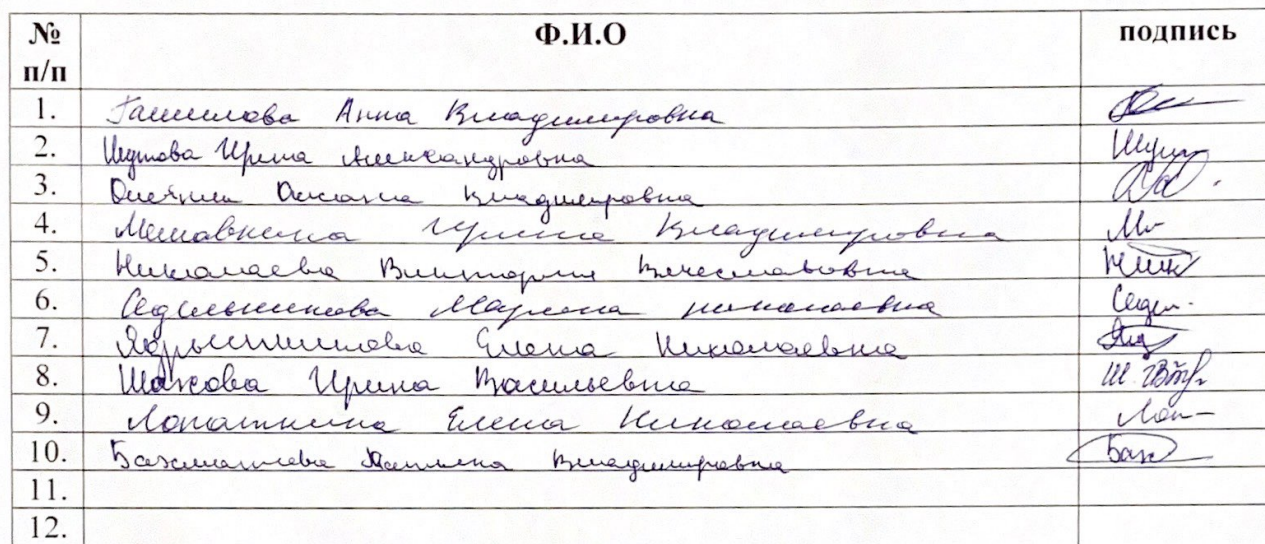 № п/п Ф.И.О подпись
1. Анна Владимировна
2. Шутова Ирина Александровна Шут
3. Оксана Владимировна
4. Ирина Владимировна
5. Николаева Виктория Вячеславовна Ник
6. Седельникова Марина николаевна Седел.
7. Елена Николаевна
8. Ирина Васильевна
9. Лопаткина Елена Николаевна Лоп
10. Владимировна Бах
11.
12.